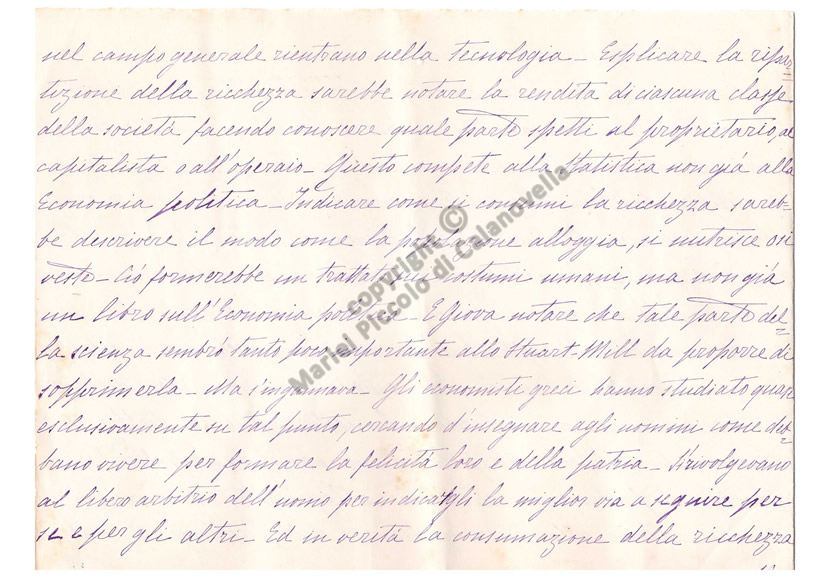 nel campo generale rientrano nella tecnologia - Esplicare la ripar=
tizione della ricchezza sarebbe notare la rendita di ciascuna classe
della società facendo conoscere quale parte spetti al proprietario, al
capitalista o all'operaio - Questo compete alla statistica non già alla
Economia politica - Indicare come si consumi la ricchezza sareb=
be descrivere il modo come la popolazione alloggia, si nutrisce o si
veste - Ciò formerebbe un trattato sui costumi umani, ma non già
un libro sull'Economia politica - E giova notare che tale parte del=
la scienza sembrò tanto poco importante allo Stuart Mill da proporre di
sopprimerla - Ma s'ingannava - Gli economisti greci hanno studiato quasi
esclusivamente su tal punto, cercando d'insegnare agli uomini come deb=
bano vivere per formare la felicità loro e della patria - Si rivolgevano
al libero arbitrio dell'uomo per indicargli la miglior via a seguire per
se e per gli altri - Ed in verità la consumazione della ricchezza
copyright ©
Mariel Piccolo di Calanovella